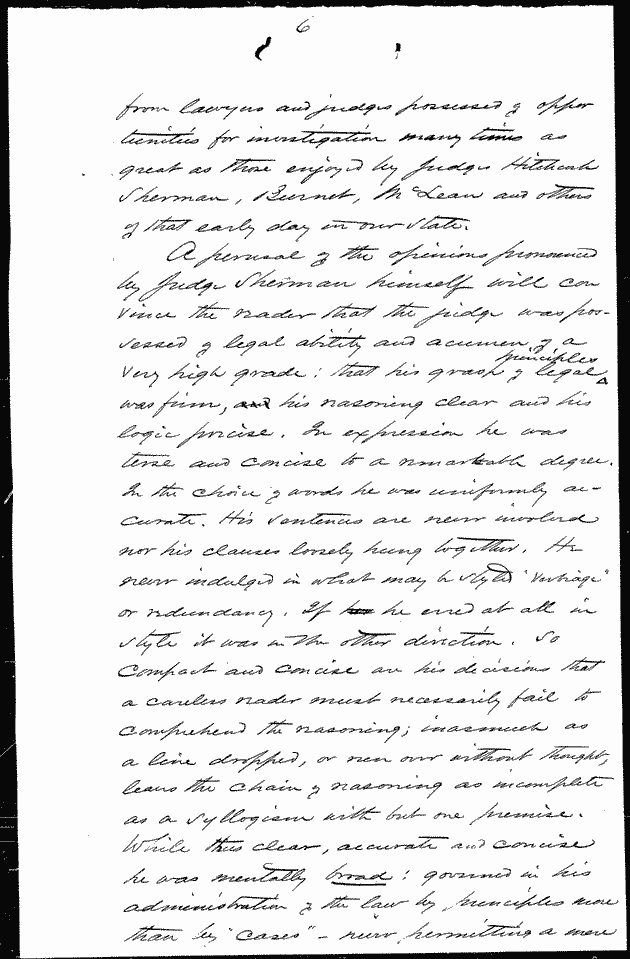 6
from lawyers and judges possessed of oppor
tunities for investigation many times as
great as those enjoyed by Judges Hitchcock
Sherman, Burnet, McLean and others
of that early day in our State.
A perusal of the opinions pronounced
by Judge Sherman himself will con
vince the reader that the judge was pos-
sessed of legal ability and acumen of a
principles
very high grade: that his grasp of legal
was firm, and his reasoning clear and his
logic precise. In expression he was
terse and concise to a remarkable degree.
In the choice of words he was uniformly ac-
curate. His sentences are never involved
nor his clauses loosely hung together. He
never indulged in what may be styled "verbiage"
or redundancy. If he erred at all in
style it was in the other direction. So
compact and concise are his decisions that
a careless reader must necessarily fail to
comprehend the reasoning; inasmuch as
a line dropped, or run over without thought,
leaves the chain of reasoning as incomplete
as a syllogism with but one premise.
While thus clear, accurate and concise
he was mentally broad: governed in his
administration of the law by principles more
than by "cases" - never permitting a mere